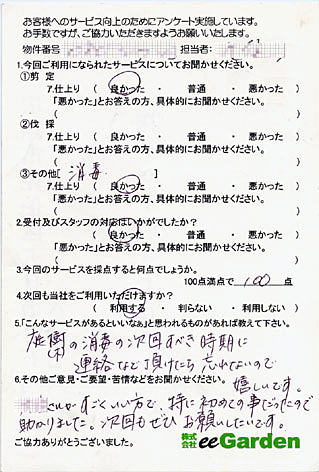 お客様へのサービス向上のためにアンケート実施しています。
お手数ですが、ご協力いただきますようお願いいたします。
物件番号 担当者:
1.今回ご利用になられたサービスについてお聞かせください。
①剪 定
7.仕上り ( 良かった ・ 普通 ・ 悪かった )
「悪かった」とお答えの方、具体的にお聞かせください。
( )
②伐 採
7.仕上り ( 良かった ・ 普通 ・ 悪かった )
「悪かった」とお答えの方、具体的にお聞かせください。
( )
③その他[ 消毒 ]
7.仕上り ( 良かった ・ 普通 ・ 悪かった )
「悪かった」とお答えの方、具体的にお聞かせください。
( )
2.受付及びスタッフの対応はいかがでしたか?
( 良かった ・ 普通 ・ 悪かった )
「悪かった」とお答えの方、具体的にお聞かせください。
( )
3.今回のサービスを採点すると何点でしょうか。
100点満点で 100 点
4.次回も当社をご利用いただけますか?
( 利用する ・ 判らない ・ 利用しない )
5.「こんなサービスがあるといいなぁ」と思われるものがあれば教えて下さい。
の消毒の次回すべき時期に
連絡など頂けたら 忘れないので
嬉しいです。
6.その他ご意見・ご要望・苦情などをお聞かせください。
さんがすごくいい方で、特に初めての事だったので
助かりました。次回もぜひお願いしたいです。
ご協力ありがとうございました。
株式会社 eeGarden